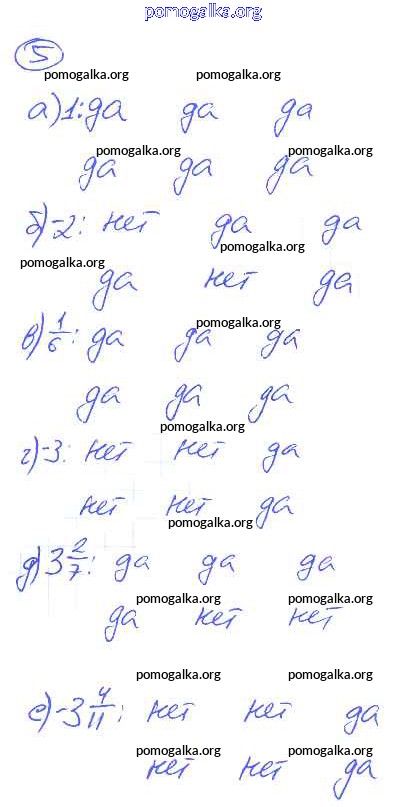 pomogalka.org
5
pomogalka.org pomogalka.org
а) 1: да да да
pomogalka.org pomogalka.org
да да да
б) -2: нет да да
pomogalka.org
pomogalka.org
да нет да
pomogalka.org
в) 1/6: да да да
да да да
pomogalka.org
г) -3: нет нет да
нет нет да
pomogalka.org
д) 3 2/7: да да да
pomogalka.org pomogalka.org
да нет нет
pomogalka.org pomogalka.org
е) -3 4/11: нет нет да
pomogalka.org pomogalka.org
нет нет да